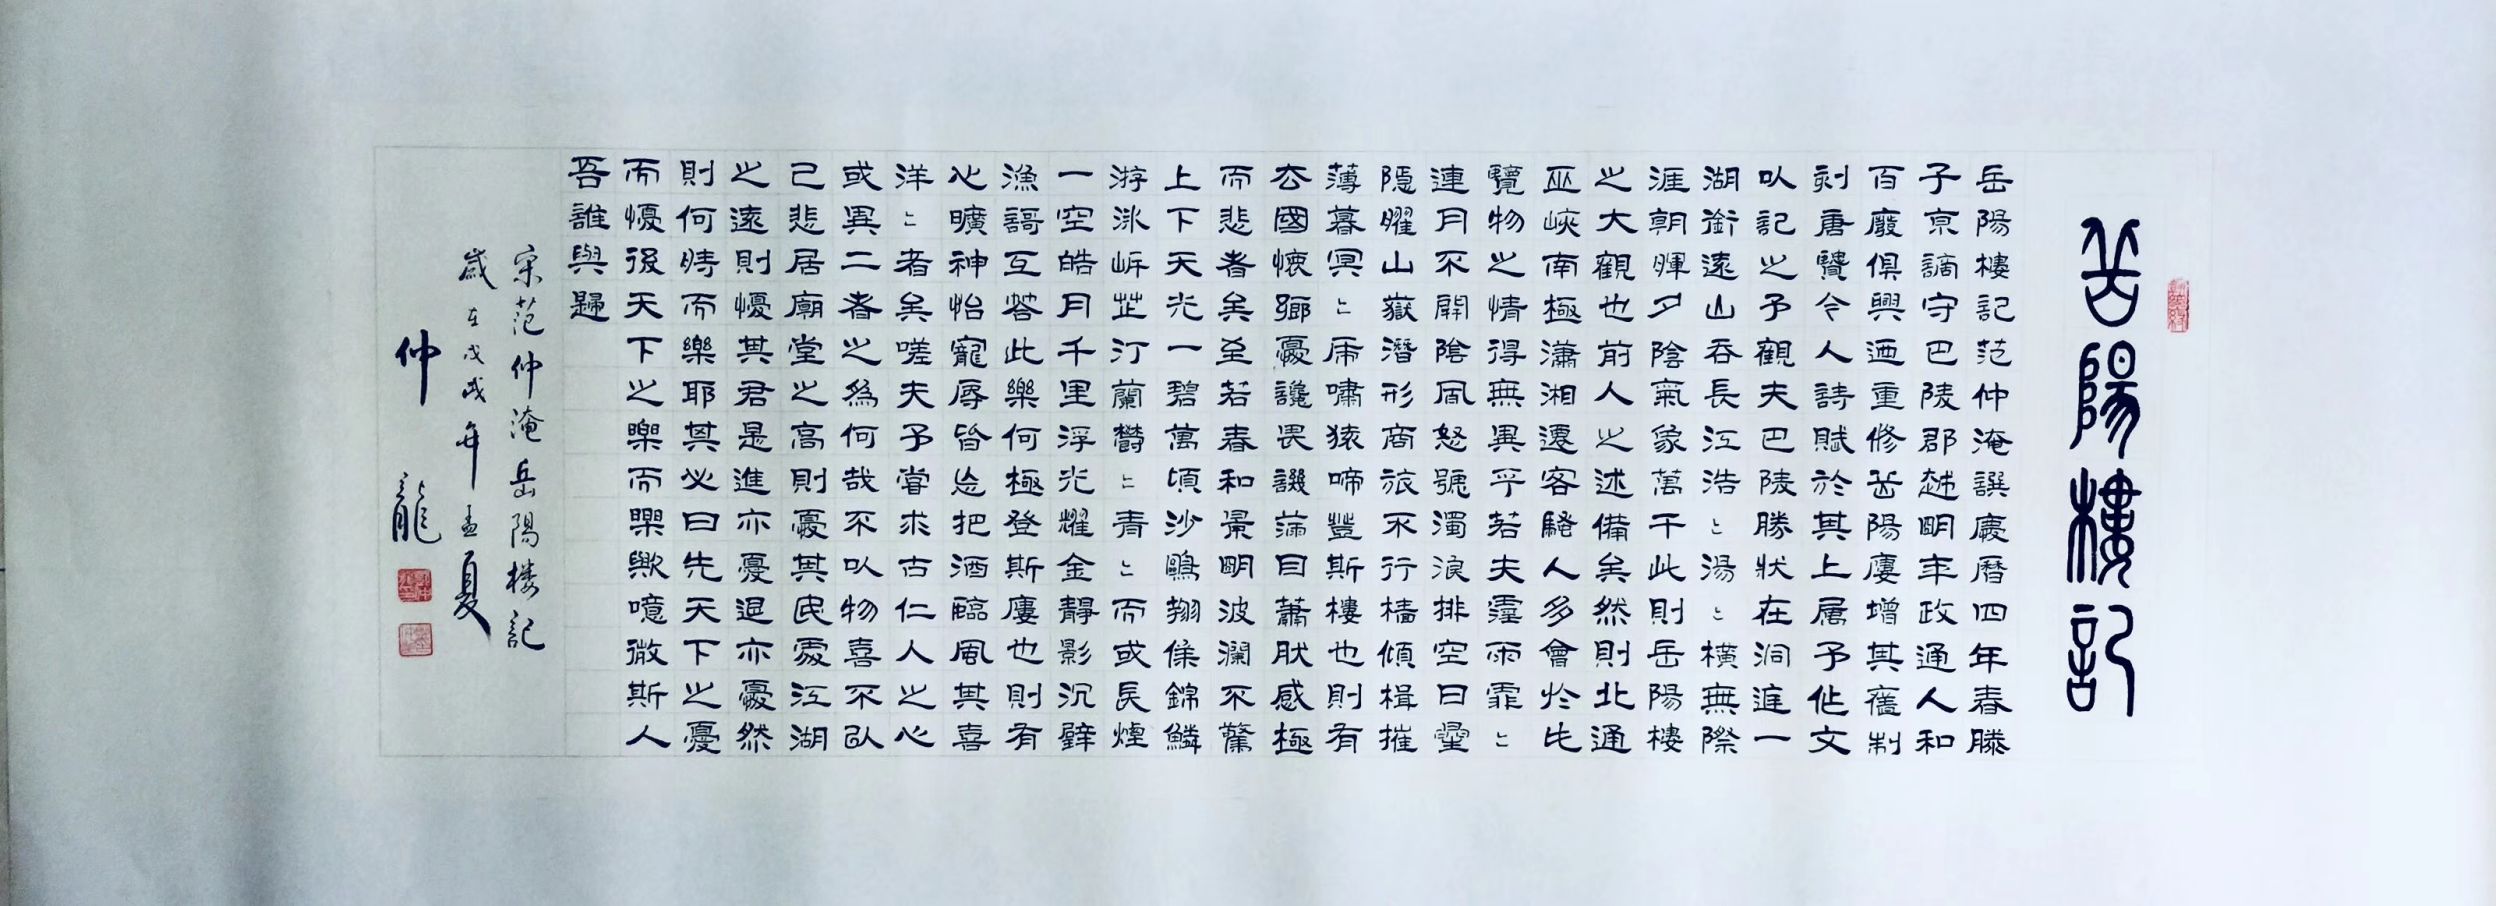 岳陽樓記
岳陽樓記范仲淹譔慶曆四年春滕
子京謫守巴陵郡越明年政通人和
百廢俱興迺重修岳陽廔增其舊制
刻唐賢令人詩賦於其上屬予作文
以記之予觀夫巴陵勝狀在洞庭一
湖銜遠山吞長江浩〻湯〻橫無際
涯朝暉夕陰氣象萬千此則岳陽樓
之大觀也前人之述備矣然則北通
巫峽南極瀟湘遷客騷人多會於此
覽物之情得無異乎若夫霪雨霏〻
連月不開陰風怒號濁浪排空日星
隱曜山嶽潛形商旅不行檣傾楫摧
薄暮冥〻虎嘯猿啼登斯樓也則有
去國懷鄉憂讒畏譏滿目蕭肰感極
而悲者矣至若春和景明波瀾不驚
上下天光一碧萬頃沙鷗翔集錦鱗
游泳岸芷汀蘭鬱〻青〻而或長煙
一空皓月千里浮光耀金靜影沉璧
漁謌互答此樂何極登斯廔也則有
心曠神怡寵辱皆忘把酒臨風其喜
洋〻者矣嗟夫予嘗求古仁人之心
或異二者之為何哉不以物喜不以
己悲居廟堂之高則憂其民處江湖
之遠則憂其君是進亦憂退亦憂然
則何時而樂耶其必曰先天下之憂
而憂後天下之樂而樂歟噫微斯人
吾誰與歸
宋范仲淹岳陽楼記
歲在戊戌年孟夏
仲龍